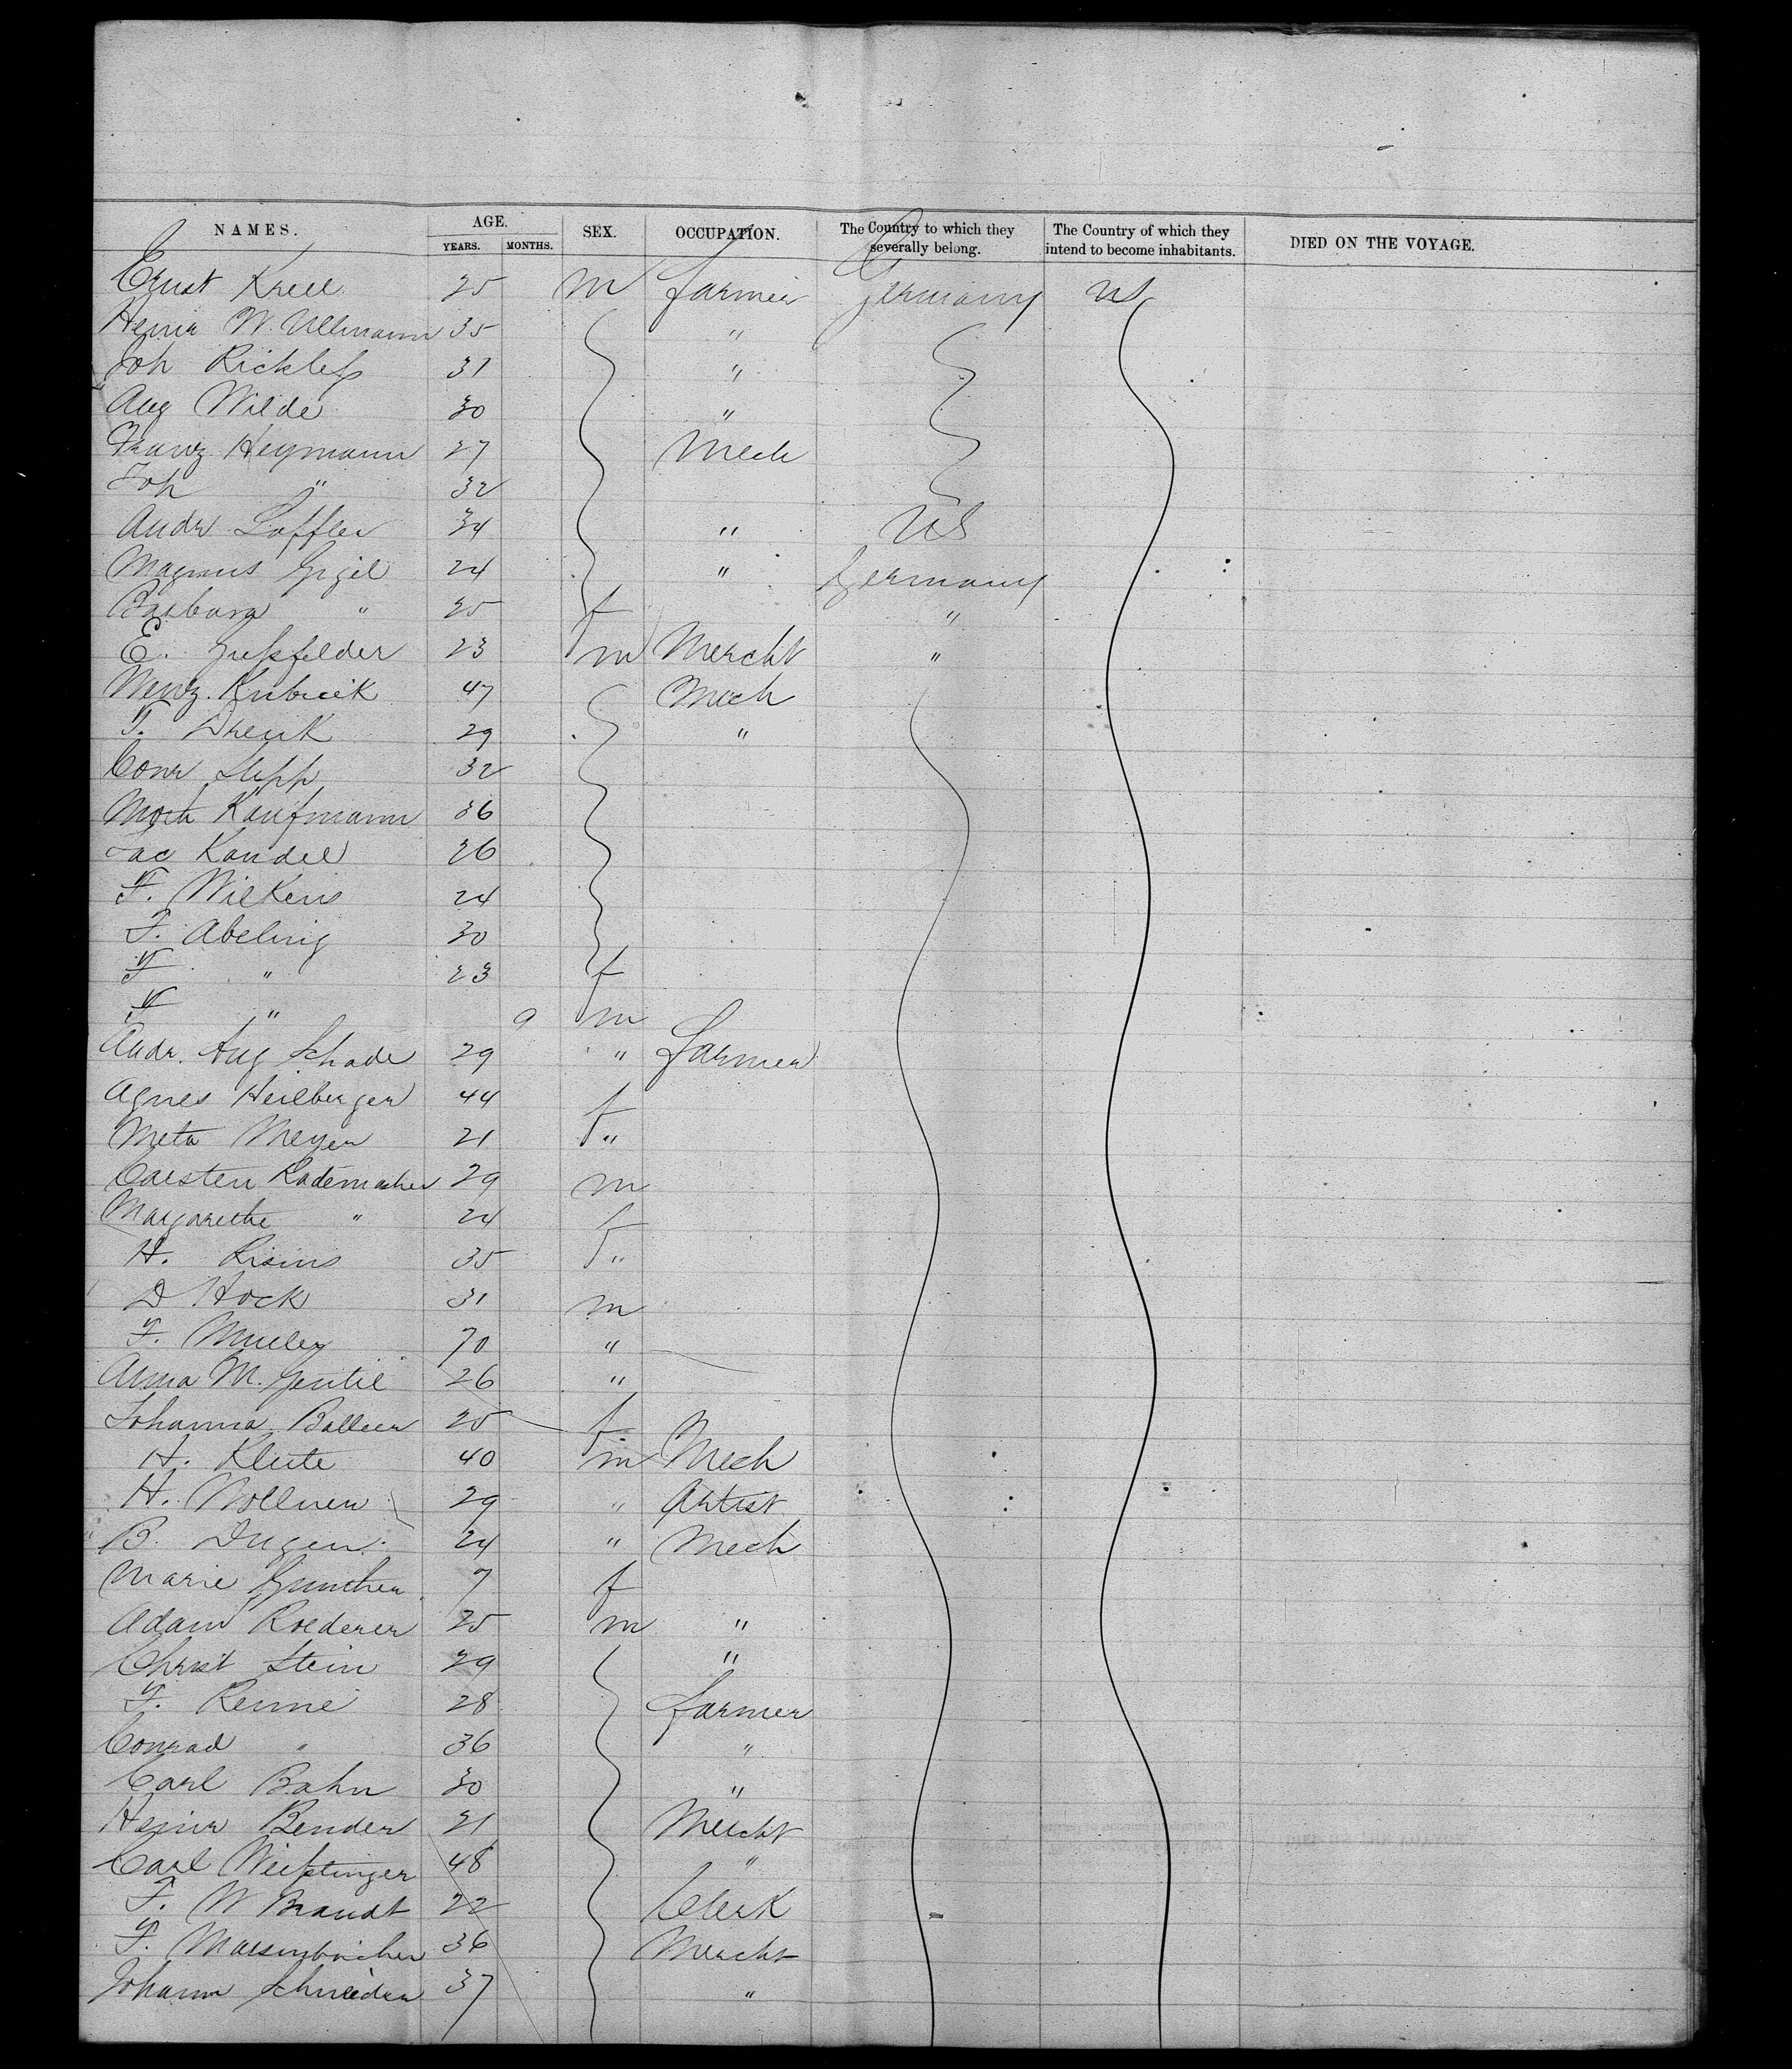 NAMES. AGE. SEX. OCCUPATION. The Country to which they severally belong. The Country of which they intend to become inhabitants. DIED ON THE VOYAGE.
YEARS. MONTHS.
Ernst Krell 25 m farmer Germany US
Heinr W. Ullmann 35 "
Joh Ricklefs 31 "
Aug Wilde 30 "
Franz Heymann 27 Mech
Joh " 32
Andr Loffler 34 " US
Magnus Gigel 24 " Germany
Barbara " 25 f "
E. Gussfelder 23 m Mercht "
Wenz. Kubicek 47 Mech
T. Drenk 29 "
Conr Stepp 32
Kaufmann 36
Jac Kandel 26
F. Wilkens 24
F. Abeling 30
F " 23 f
F " 9 m
Andr. Aug Schade 29 " farmer
Agnes Heilberger 44 f
Meta Meyer 21 "
Carsten Rademacher 29 m
Margarethe " 24 f
H. Risins 35 "
D Hock 31 m
F. 70 "
Anna M. Gentil 26 "
Johanna Balleer 25 f
H. Klute 40 m Mech
H. Wollner 29 " Artist
B. Dugen 24 " Mech
Marie Gunther 7 f
Adam Roederer 25 m "
Christ Stein 29 "
F. Renne 28 farmer
Conrad " 36 "
Carl Bahn 30 "
Heinr Bender 21 Mercht
Carl 48 "
F. W Brandt 22 Clerk
F. 36 Mercht
Johann Schneider 37 "